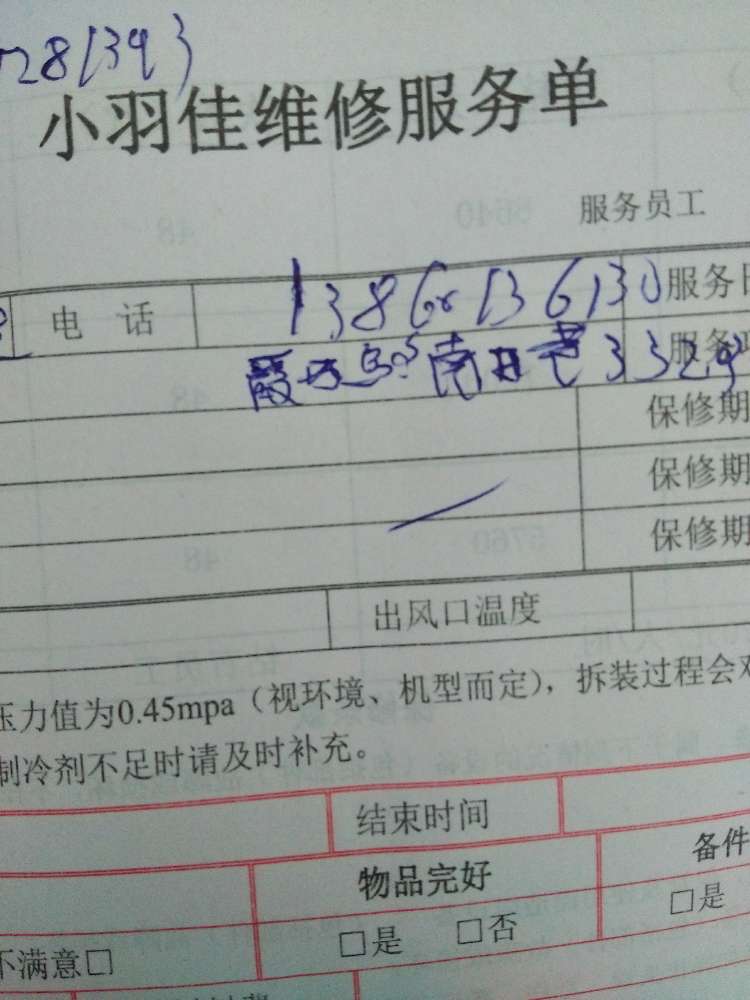 281393
小羽佳维修服务单
服务员工
电 话 服务日
南 332号
保修期
保修期
保修期
出风口温度
压力值为0.45mpa（视环境、机型而定），拆装过程会对
制冷剂不足时请及时补充。
结束时间
物品完好 备件
不满意□ □是 □否 □是